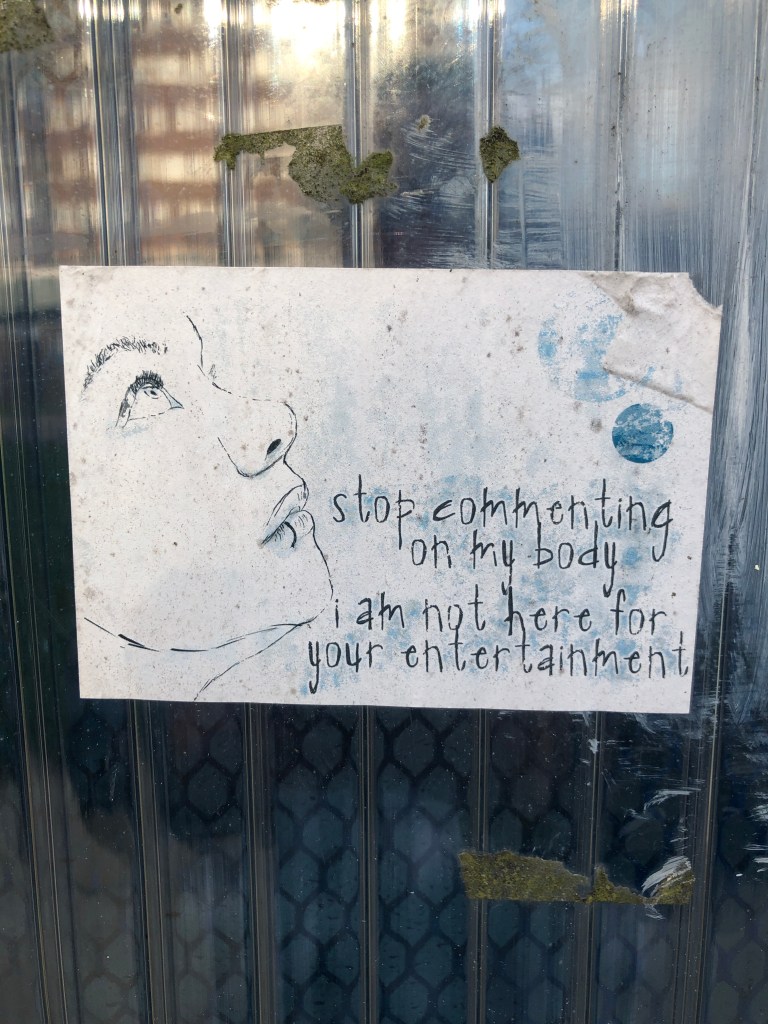 stop commenting
on my body
i am not here for
your entertainment